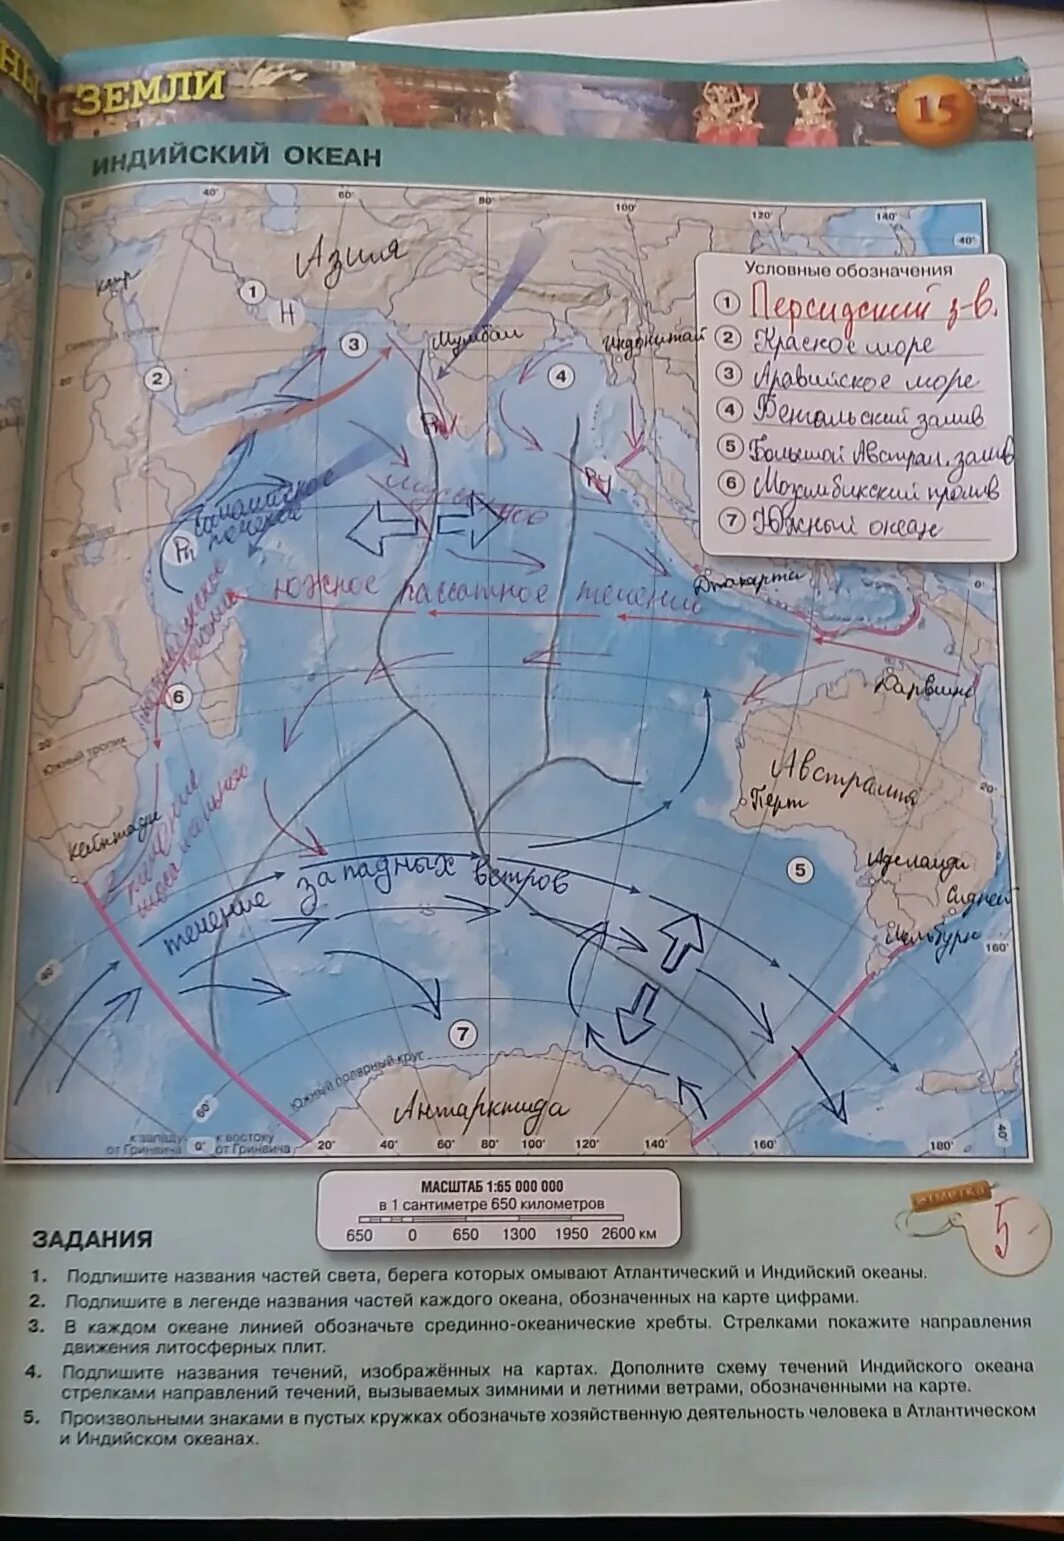 НЫ
ЗЕМЛИ
15
ИНДИЙСКИЙ ОКЕАН
40°
60°
80°
100°
120°
140°
40°
Условные обозначения
1 Персидский з-в.
2 Красное море
3 Аравийское море
4 Бенгальский залив
5 Большой Австрал. залив
6 Мозамбикский пролив
7 Южный океан
Азия
Каир
1
Н
3
Мумбаи
Индокитай
2
4
Сомалийское
течение
Муссонное
Джакарта
0°
Южное пассатное течение
6
Дарвин
20°
Южный тропик
Австралия
20°
Перт
течение
5
Аделаида
Сидней
Мельбурн
160°
течение западных ветров
40°
7
Южный полярный круг
Антарктида
60°
к западу от Гринвича
0°
к востоку от Гринвича
20°
40°
60°
80°
100°
120°
140°
160°
180°
40°
МАСШТАБ 1:65 000 000
в 1 сантиметре 650 километров
650 0 650 1300 1950 2600 км
отметка
5-
ЗАДАНИЯ
1. Подпишите названия частей света, берега которых омывают Атлантический и Индийский океаны.
2. Подпишите в легенде названия частей каждого океана, обозначенных на карте цифрами.
3. В каждом океане линией обозначьте срединно-океанические хребты. Стрелками покажите направления
движения литосферных плит.
4. Подпишите названия течений, изображённых на картах. Дополните схему течений Индийского океана
стрелками направлений течений, вызываемых зимними и летними ветрами, обозначенными на карте.
5. Произвольными знаками в пустых кружках обозначьте хозяйственную деятельность человека в Атлантическом
и Индийском океанах.